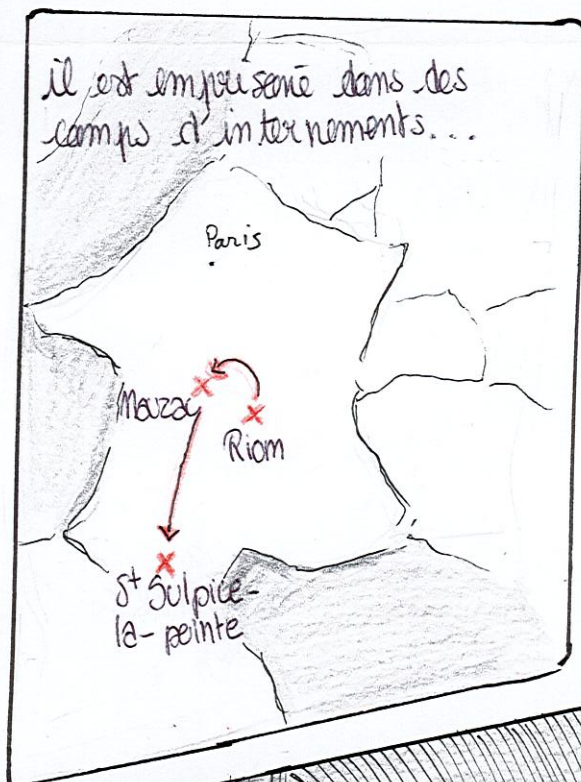 il est emprisonné dans des
camps d'internements...
Paris
Mauzac
Riom
St Sulpice-
la-peinte